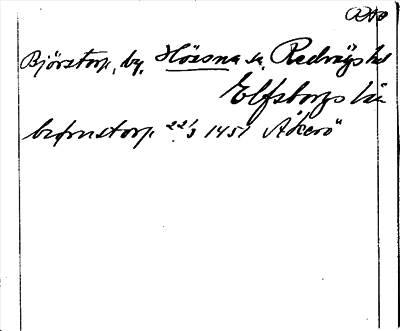 Björstorp, by, Hössna sn, Redvägs hd
Elfsborgs län
befrnstorp 22/3 1451 Åkerö